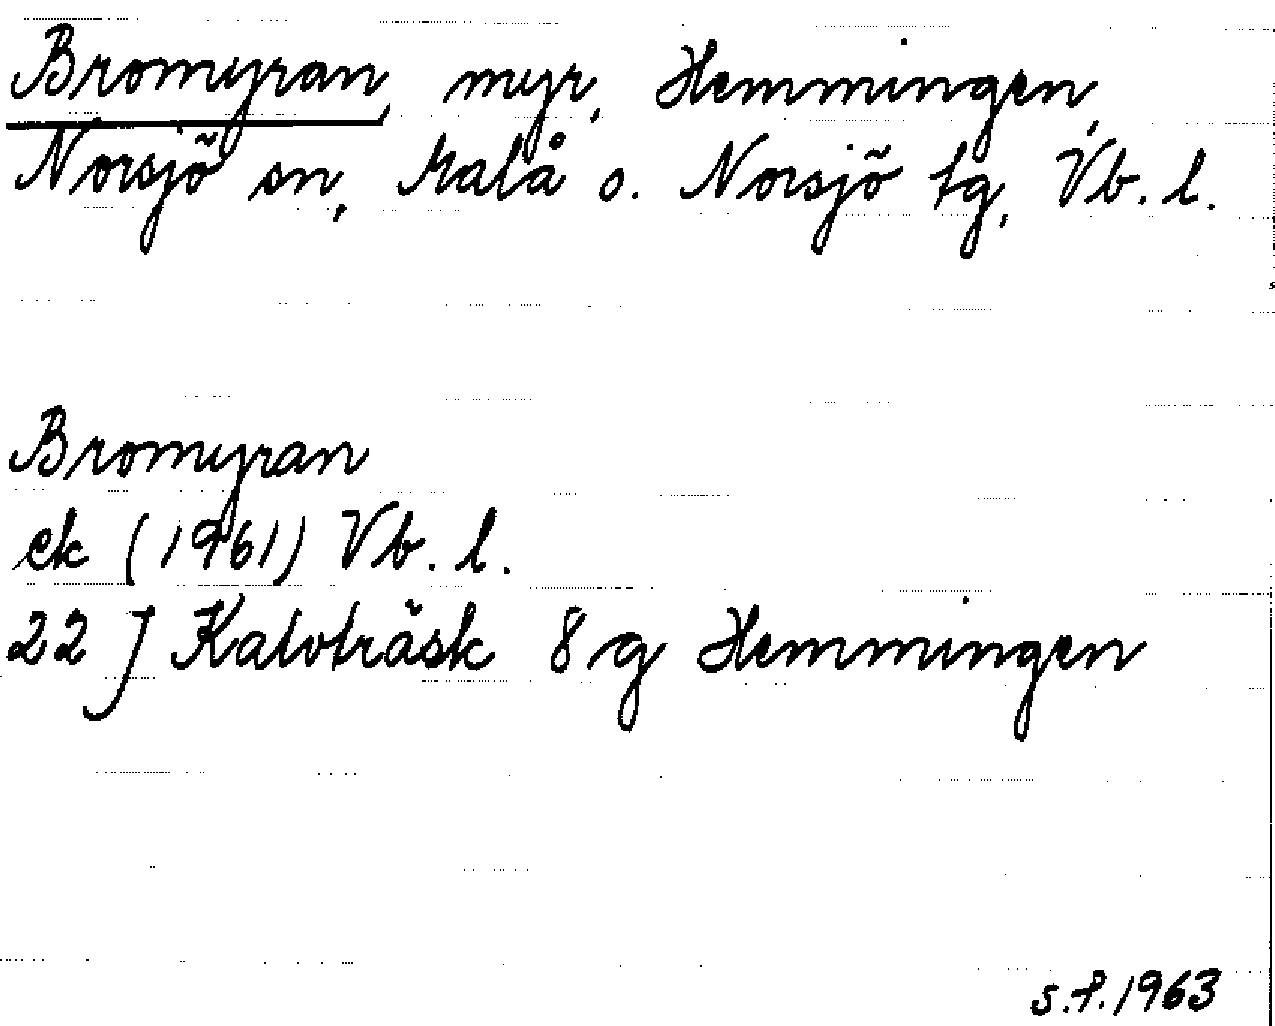 Bromyran, myr, Hemmingen,
Norsjö sn, Malå o. Norsjö tg, Vb. l.
Bromyran
ek (1961) Vb. l.
22 J Kalvträsk 8 g Hemmingen
S.F. 1963